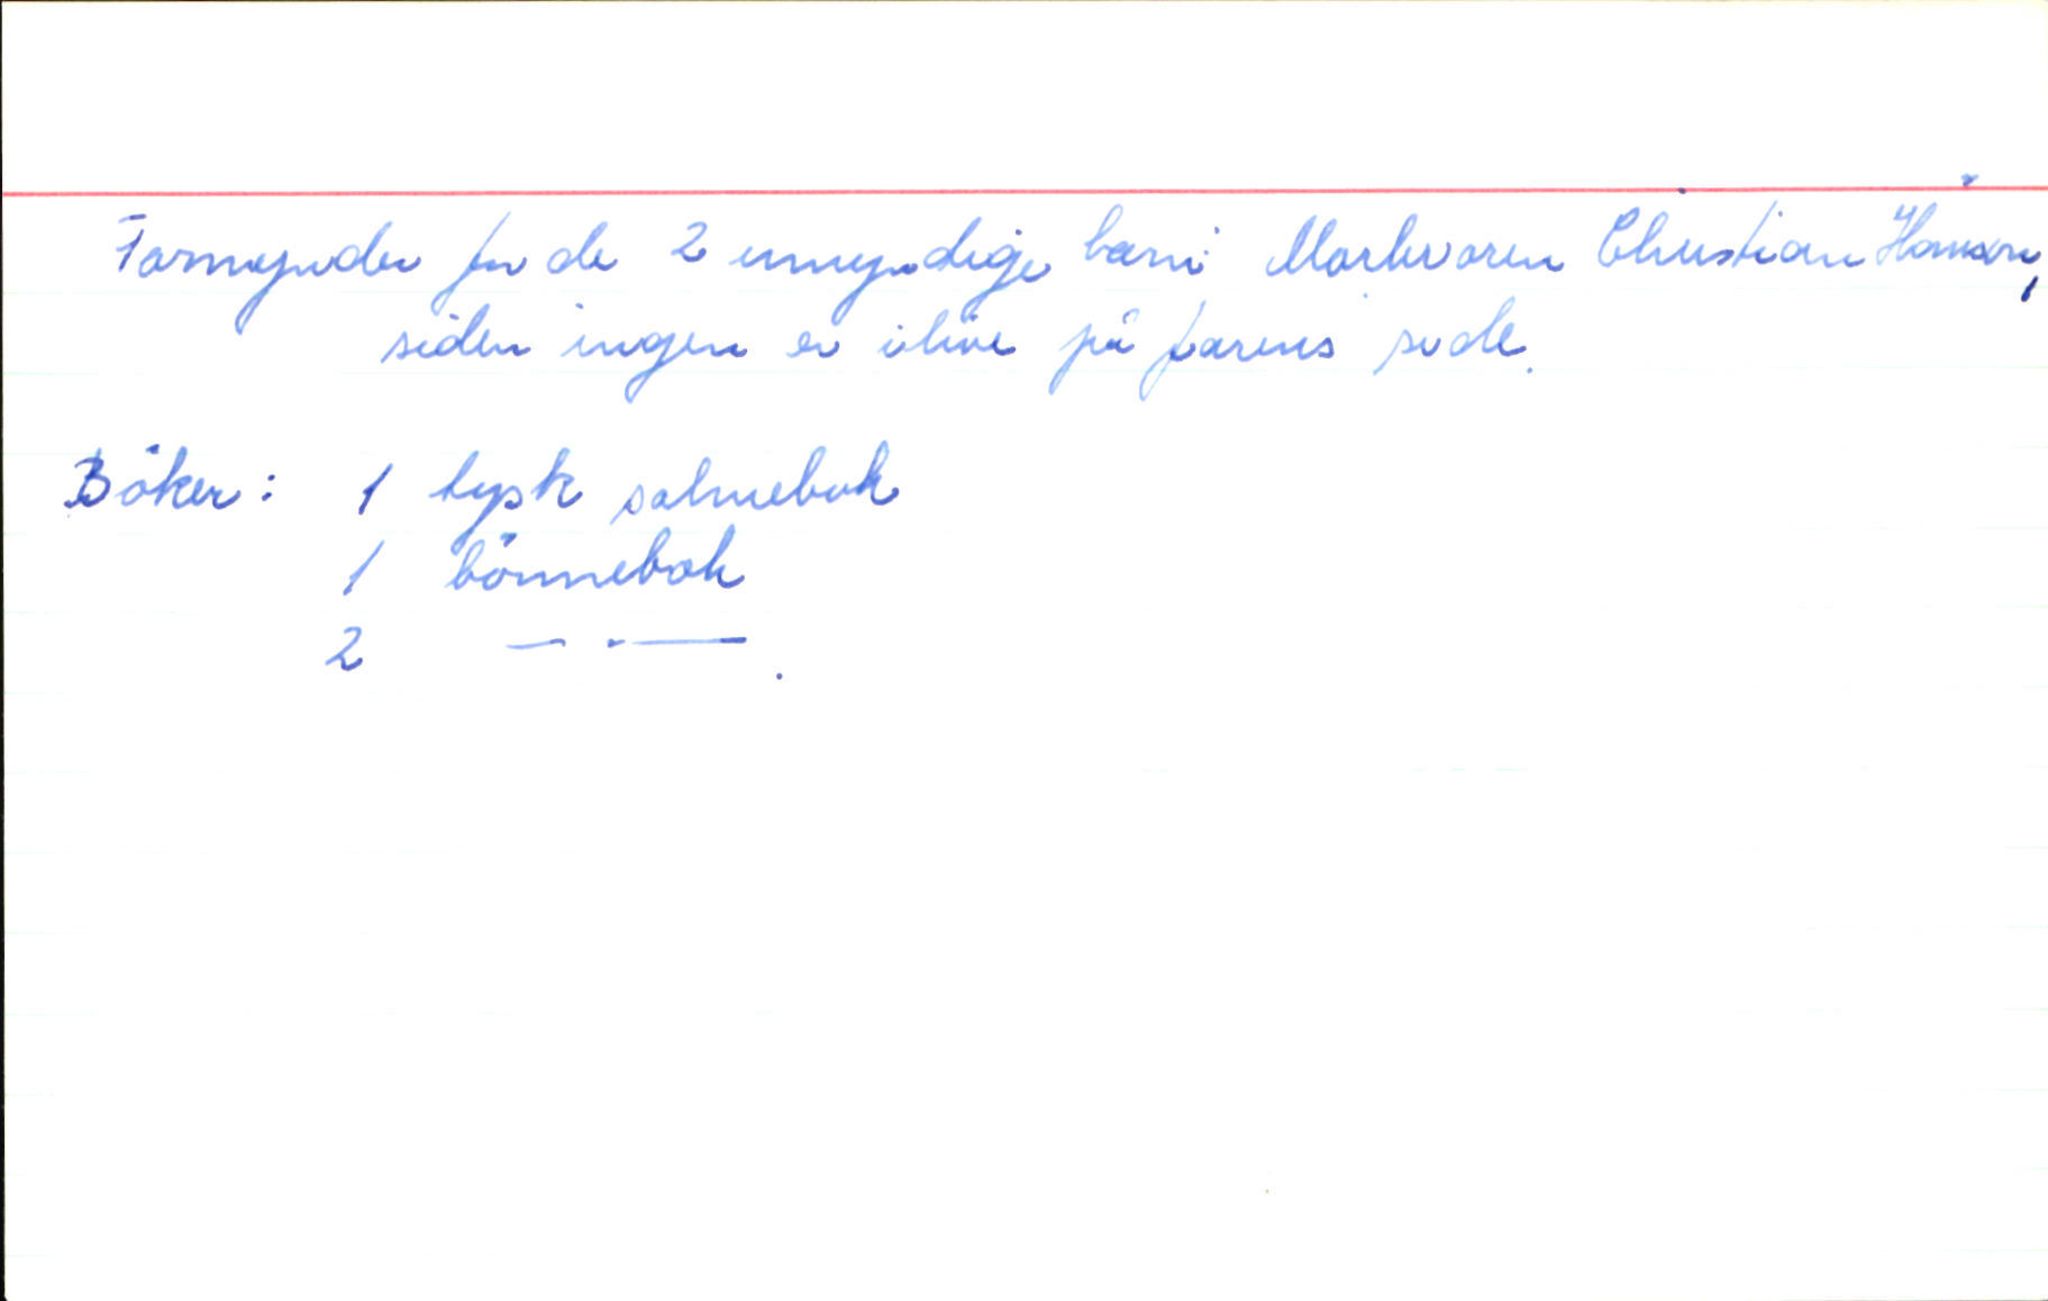 Formynder for de 2 umyndige barn: Morbroren Christian Hansen,
siden ingen er ilive på farens side.
Böker: 1 tysk salmebok
1 bönnebok
2 — — .